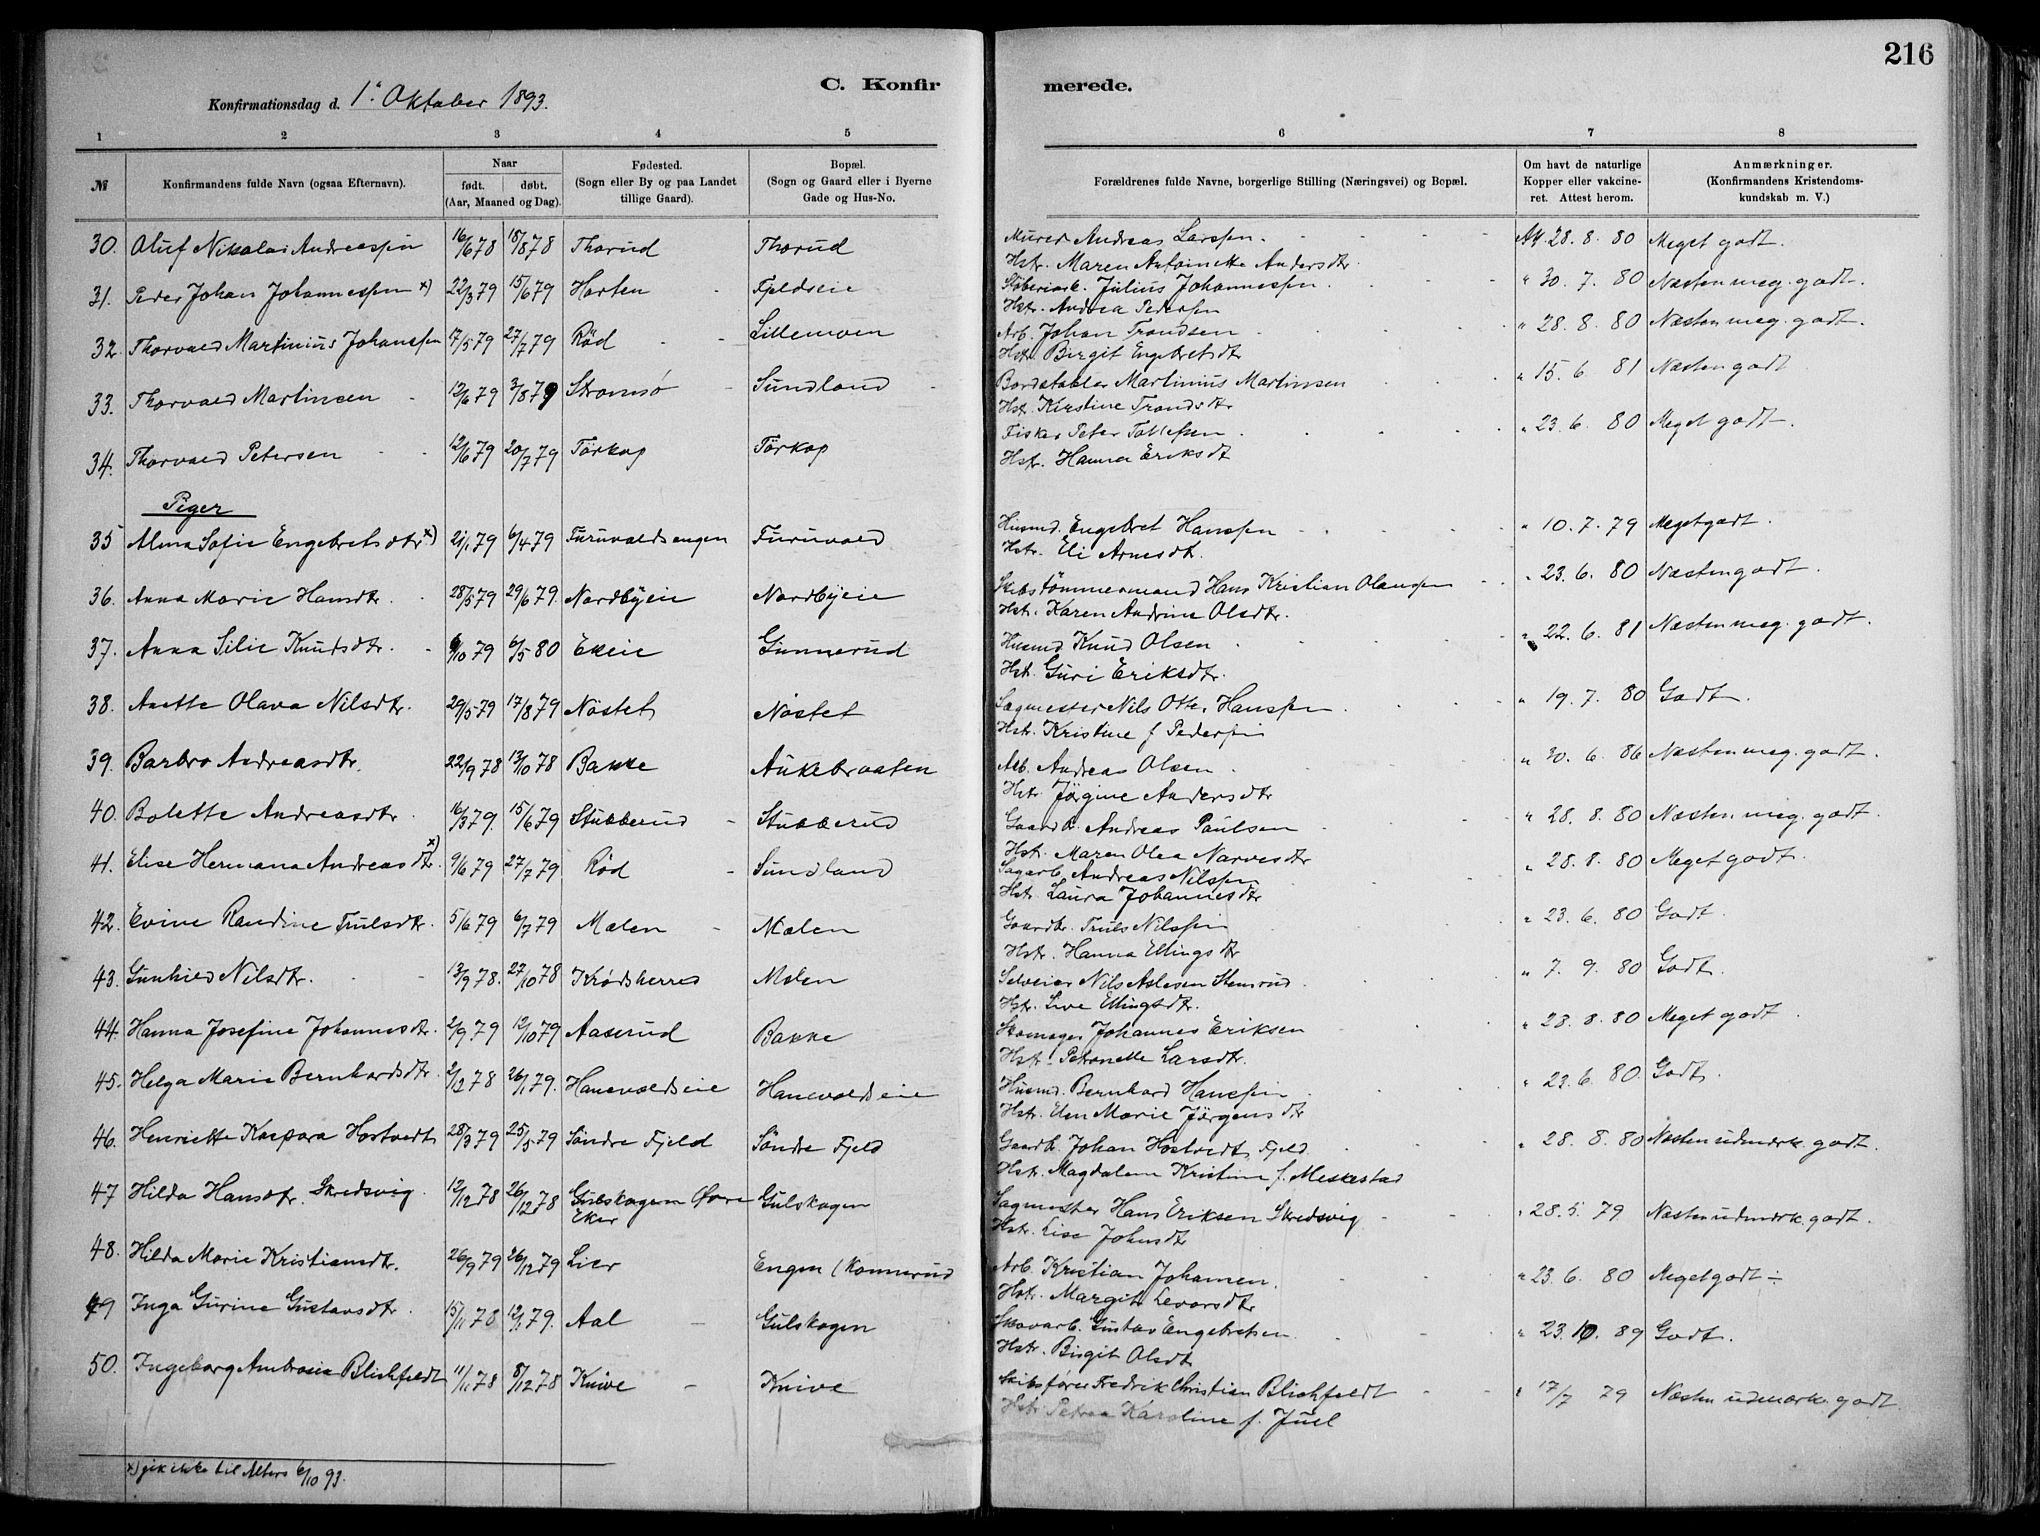 216
C. Konfir merede.
Konfirmationsdag d. 1ste Oktober 1893.
1 2 3 4 5 6 7 8
№ Konfirmandens fulde Navn (ogsaa Efternavn).
Naar født. døbt. (Aar, Maaned og Dag).
Fødested. (Sogn eller By og paa Landet tillige Gaard).
Bopæl. (Sogn og Gaard eller i Byerne Gade og Hus-No.
Forældrenes fulde Navne, borgerlige Stilling (Næringsvei) og Bopæl.
Om havt de naturlige Kopper eller vakcineret. Attest herom.
Anmærkninger. (Konfirmandens Kristendomskundskab m. V.)
30. Oluf Nikolai Andreassen 16/6 78 18/8 78 Thorud Thorud Murer Andreas Larssen. Att. 28. 8. 80 Meget godt.
Hstr. Maren Antoinette Andersdtr.
31. Peder Johan Johannessen x) 22/3 79 15/6 79 Horten Fjeldseie Støberiarb. Julius Johannessen " 30. 7. 80 Næsten meg. godt.
Hstr. Andrea Pedersen
32. Thorvald Martinius Johanssen 17/5 79 27/7 79 Rød Lillemoen Arb. Johan Trondsen " 28. 8. 80 Næsten meg. godt.
Hstr. Birgit Engebretsdtr
33. Thorvald Martinsen 12/6 79 3/8 79 Strømsø Sundland Bordstabler Martinius Martinsen " 15. 6. 81 Næsten godt
Hst. Kirstine Trondsdtr
34. Thorvald Petersen 12/6 79 20/7 79 Tørkop Tørkop Fisker Peter Tollefsen " 23. 6. 80 Meget godt.
Hstr. Hanna Eriksdt
Piger
35 Alma Sofie Engebretsdtr x) 21/1 79 6/4 79 Furuvaldsengen Furuvald Husmd. Engebret Hanssen " 10. 7. 79 Meget godt.
Hstr. Eli Arnesdt.
36. Anna Marie Hansdtr. 28/5 79 29/6 79. Nordbyeie Nordbyeie Skibstømmermand Hans Kristian Olaussen " 23. 6. 80 Næsten godt.
Hstr. Karen Andrine Olsdtr.
37. Anna Silie Knudsdtr. 6/10 79 6/5 80 Ekeie Gunnerud Husmd Knud Olsen " 22. 6. 81 Næsten meg. godt.
Hst. Guri Eriksdtr.
38. Anette Olava Nilsdtr. 29/5 79 17/8 79 Nøstet Nøstet Sagmester Nils Otto Hanssen " 19. 7. 80 Godt.
Hst. Kristine f Pedersen
39. Barbro Andreasdtr. 22/9 78 13/10 78 Bakke Aukebraaten Arb. Andreas Olsen " 30. 6. 86 Næsten meg. godt.
Hstr. Jørgine Andersdtr
40. Bolette Andreasdtr. 16/3 79. 15/6 79 Stubberud Stubberud Gaardb. Andreas Paulsen " 28. 8. 80 Næsten meg. godt.
Hstr. Maren Olea Narvesdtr
41. Elise Hermana Andreasdtr x) 9/6 79 27/7 79 Rød Sundland Sagarb. Andreas Nilssen " 28. 8. 80 Meget godt.
Hst. Laura Johannesdtr
42. Evine Randine Trulsdtr. 5/6 79 6/7 79 Mælen Mælen Gaardbr. Truls Nilssen " 23. 6. 80 Godt.
Hstr. Hanna Ellingsdtr
43. Gunhild Nilsdtr. 13/9 78. 27/10 78 Krødsherred Mælen Selveier Nils Aslesen Stenrud " 7. 9. 80 Godt.
Hst. Live Ellingsdtr.
44. Hanna Josefine Johannesdtr. 2/9 79 12/10 79 Aaserud Bakke Skomager Johannes Eriksen " 28. 8. 80 Meget godt.
Hst. Petronelle Larsdtr.
45. Helga Marie Bernhardsdtr. 2/12 78 26/1 79. Hanevoldseie Hanevoldseie Husmd. Bernhard Hanssen " 23. 6. 80. Godt.
Hst. Elen Marie Jørgensdtr
46. Henriette Kaspara Hostvedt 28/3 79 25/5 79 Søndre Fjeld Søndre Fjeld Gaardb. Johan Hostvedt Fjeld " 28. 8. 80 Næsten udmærk. godt.
Hst. Magdalena Kristine f. Meskestad
47 Hilda Hansdtr. Skredsvig. 12/12 78 26/12 78 Gulskogen Øvre Eker Gulskogen Sagmester Hans Eriksen Skredsvig " 28. 5. 79 Næsten udmærk. godt.
Hst. Lise Johnsdtr
48. Hilda Marie Kristiansdtr. 26/9 79 26/12 79 Lier Engen (Konnerud Arb. Kristian Johansen. " 23. 6. 80 Meget godt ÷
Hstr. Margit Levorsdtr
49 Inga Gurine Gustavsdtr. 15/11 78 12/1 79. Aal Gulskogen Skovarb. Gustav Engebretsen " 23. 10. 89 Godt.
Hst. Birgit Olsdt
50. Ingeborg Ambrosia Blichfeldt 11/11 78 8/12 78 Knive Knive Skibsfører Fredrik Christian Blichfeldt " 17/7 79 Næsten udmærk. godt
Hstr Petrea Karoline f. Juel
x) gik ikke til Alters 6/10 93.